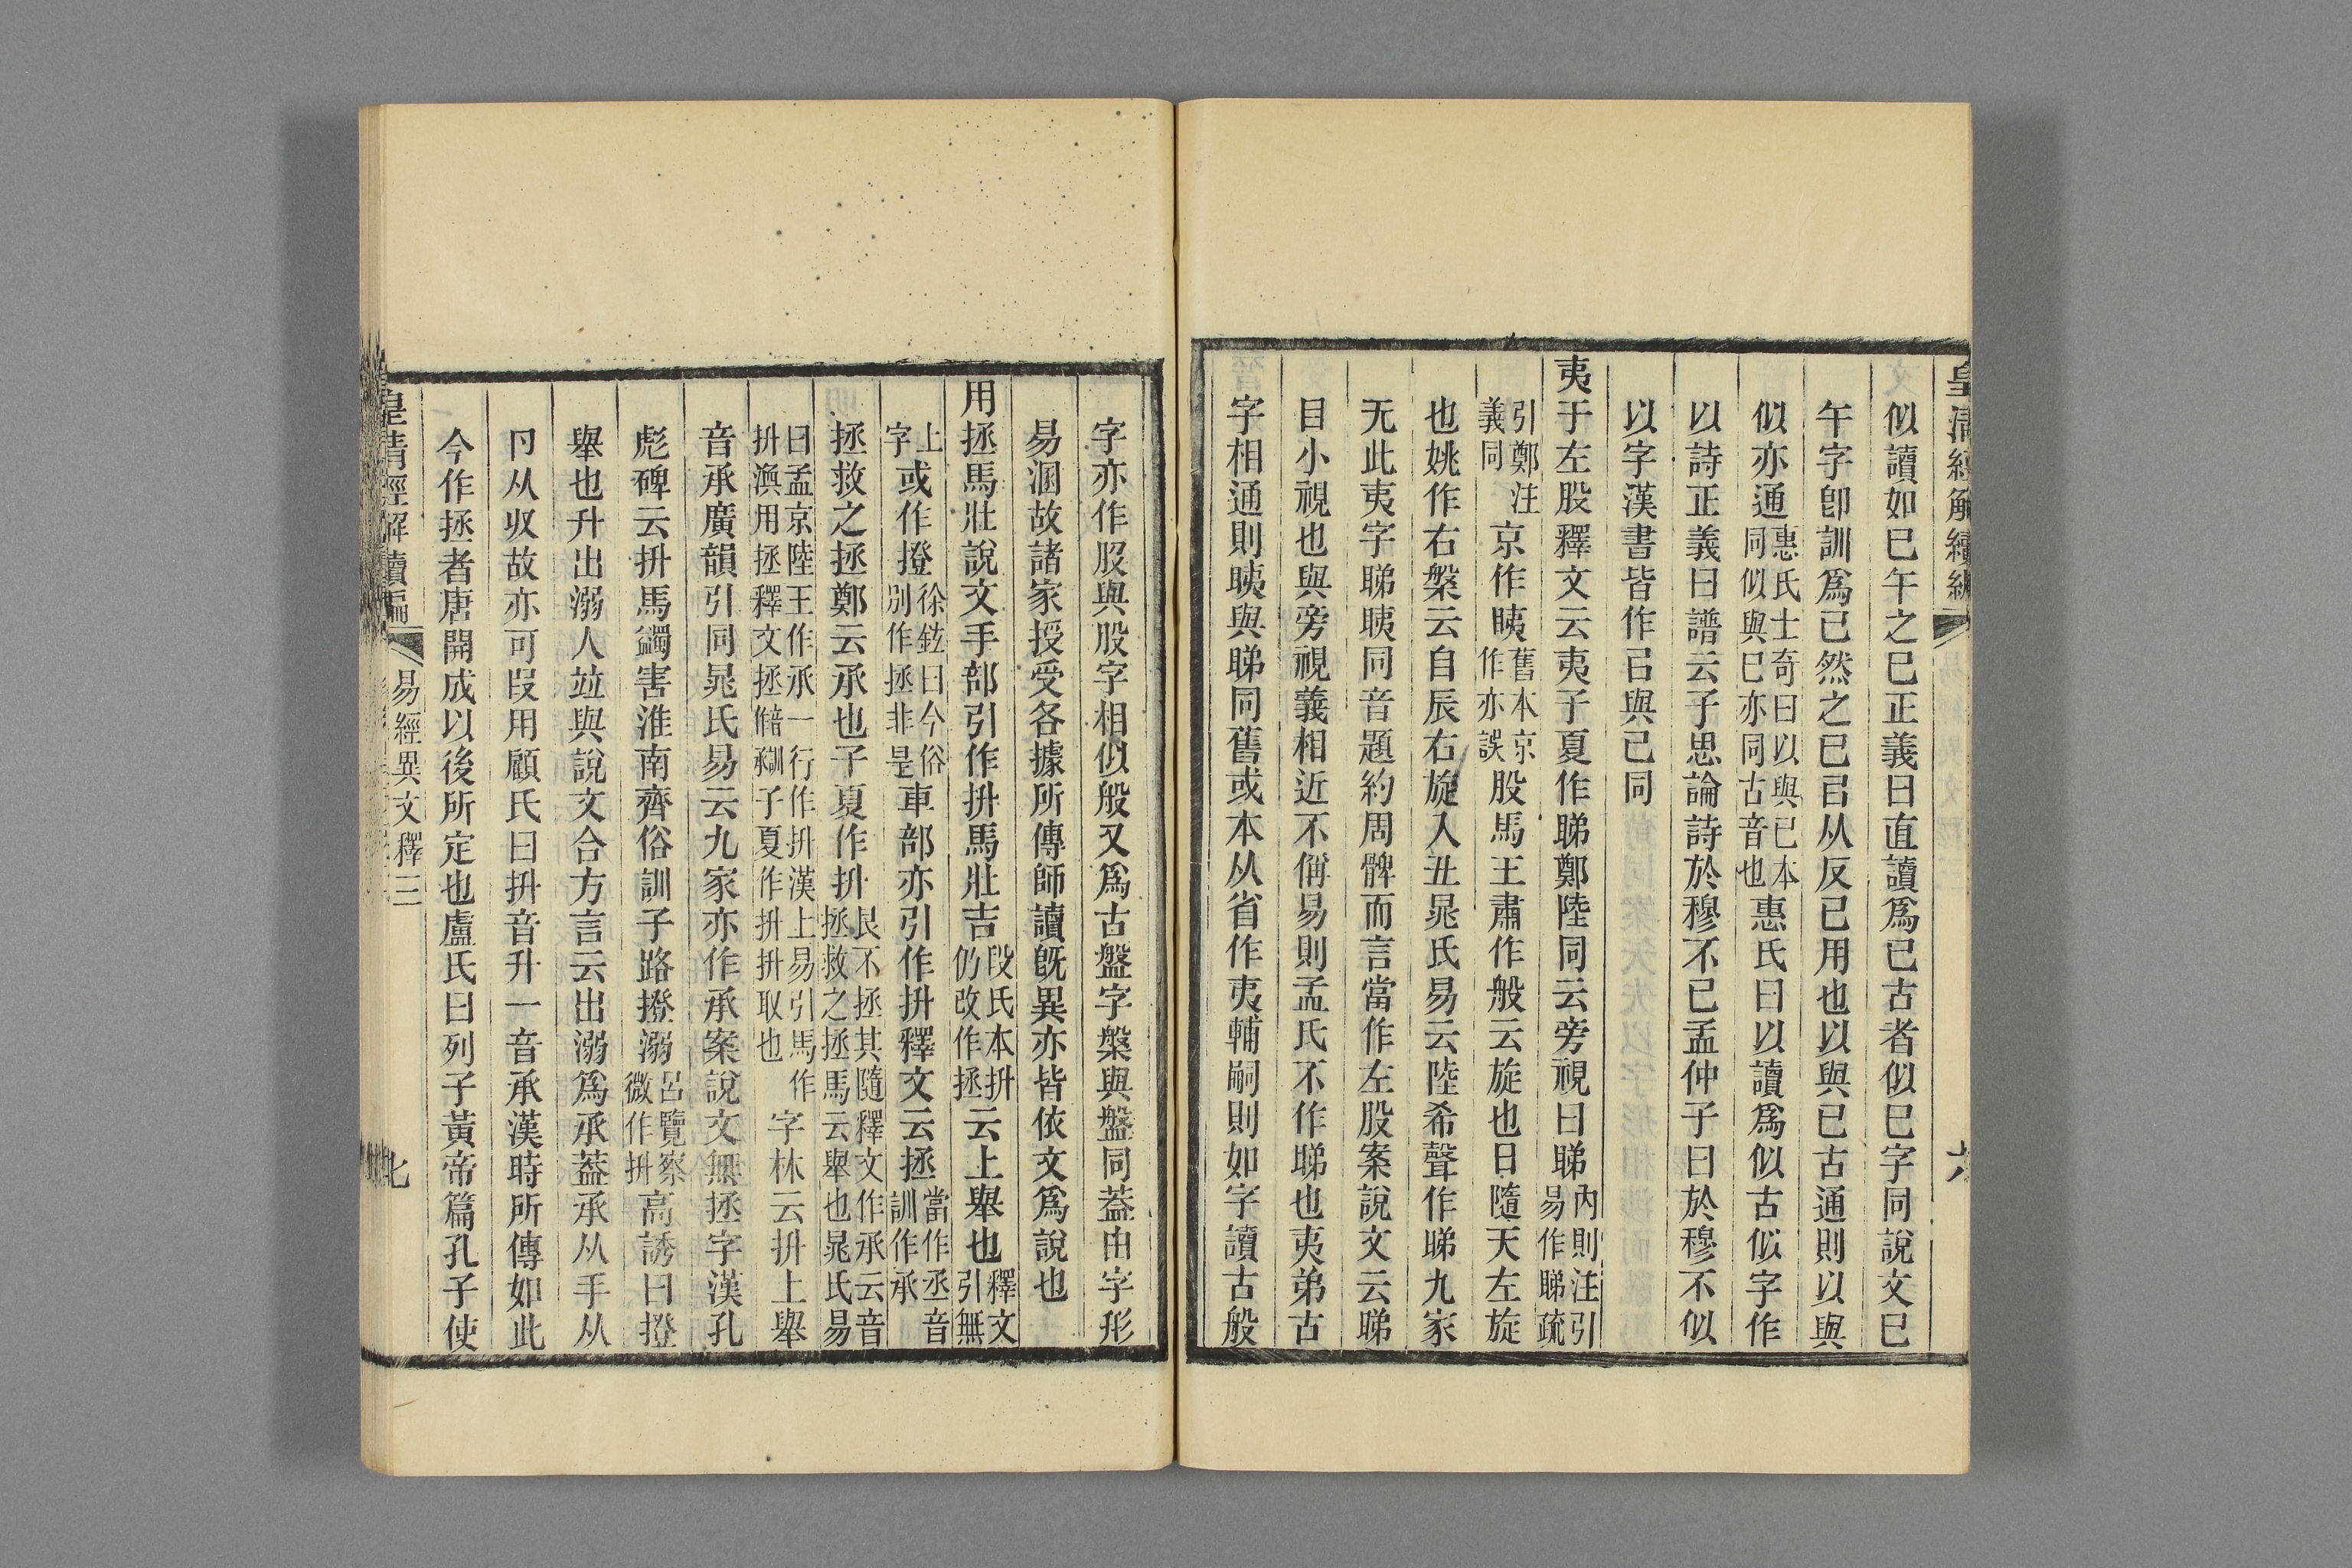 皇清經解續編
六
似讀如巳午之巳正義曰直讀爲已古者似巳字同說文巳
午字卽訓爲已然之已㠯从反已用也以與已古通則以與
似亦通惠氏士奇曰以與已本同似與巳亦同古音也惠氏曰以讀爲似古似字作
以詩正義曰譜云子思論詩於穆不已孟仲子曰於穆不似
以字漢書皆作㠯與已同
夷于左股釋文云夷子夏作睇鄭陸同云旁視曰睇內則注引易作睇疏
引鄭注義同京作眱舊本京作亦誤股馬王肅作般云旋也日隨天左旋
也姚作右槃云自辰右旋入丑晁氏易云陸希聲作睇九家
无此夷字睇眱同音題約周髀而言當作左股案說文云睇
目小視也與旁視義相近不偁易則孟氏不作睇也夷弟古
字相通則眱與睇同舊或本从省作夷輔嗣則如字讀古般
字亦作股與股字相似般又爲古盤字槃與盤同葢由字形
易溷故諸家授受各據所傳師讀旣異亦皆依文爲說也
用拯馬壯說文手部引作拚馬壯吉段氏本拚仍改作拯云上舉也釋文引無
上字或作撜徐鉉曰今俗別作拯非是車部亦引作拚釋文云拯當作丞音訓作承
拯救之拯鄭云承也子夏作抍艮不拯其隨釋文作承云音拯救之拯馬云舉也晁氏易
曰孟京陸王作承一行作抍漢上易引馬作抍渙用拯釋文拯子夏作抍抍取也字林云抍上舉
音承廣韻引同晁氏易云九家亦作承案說文無拯字漢孔
彪碑云抍馬蠲害淮南齊俗訓子路撜溺呂覽察微作抍高誘曰撜
舉也升出溺人竝與說文合方言云出溺爲承葢承从手从
卪从収故亦可叚用顧氏曰抍音升一音承漢時所傳如此
今作拯者唐開成以後所定也盧氏曰列子黃帝篇孔子使
皇清經解續編
易經異文釋三
七